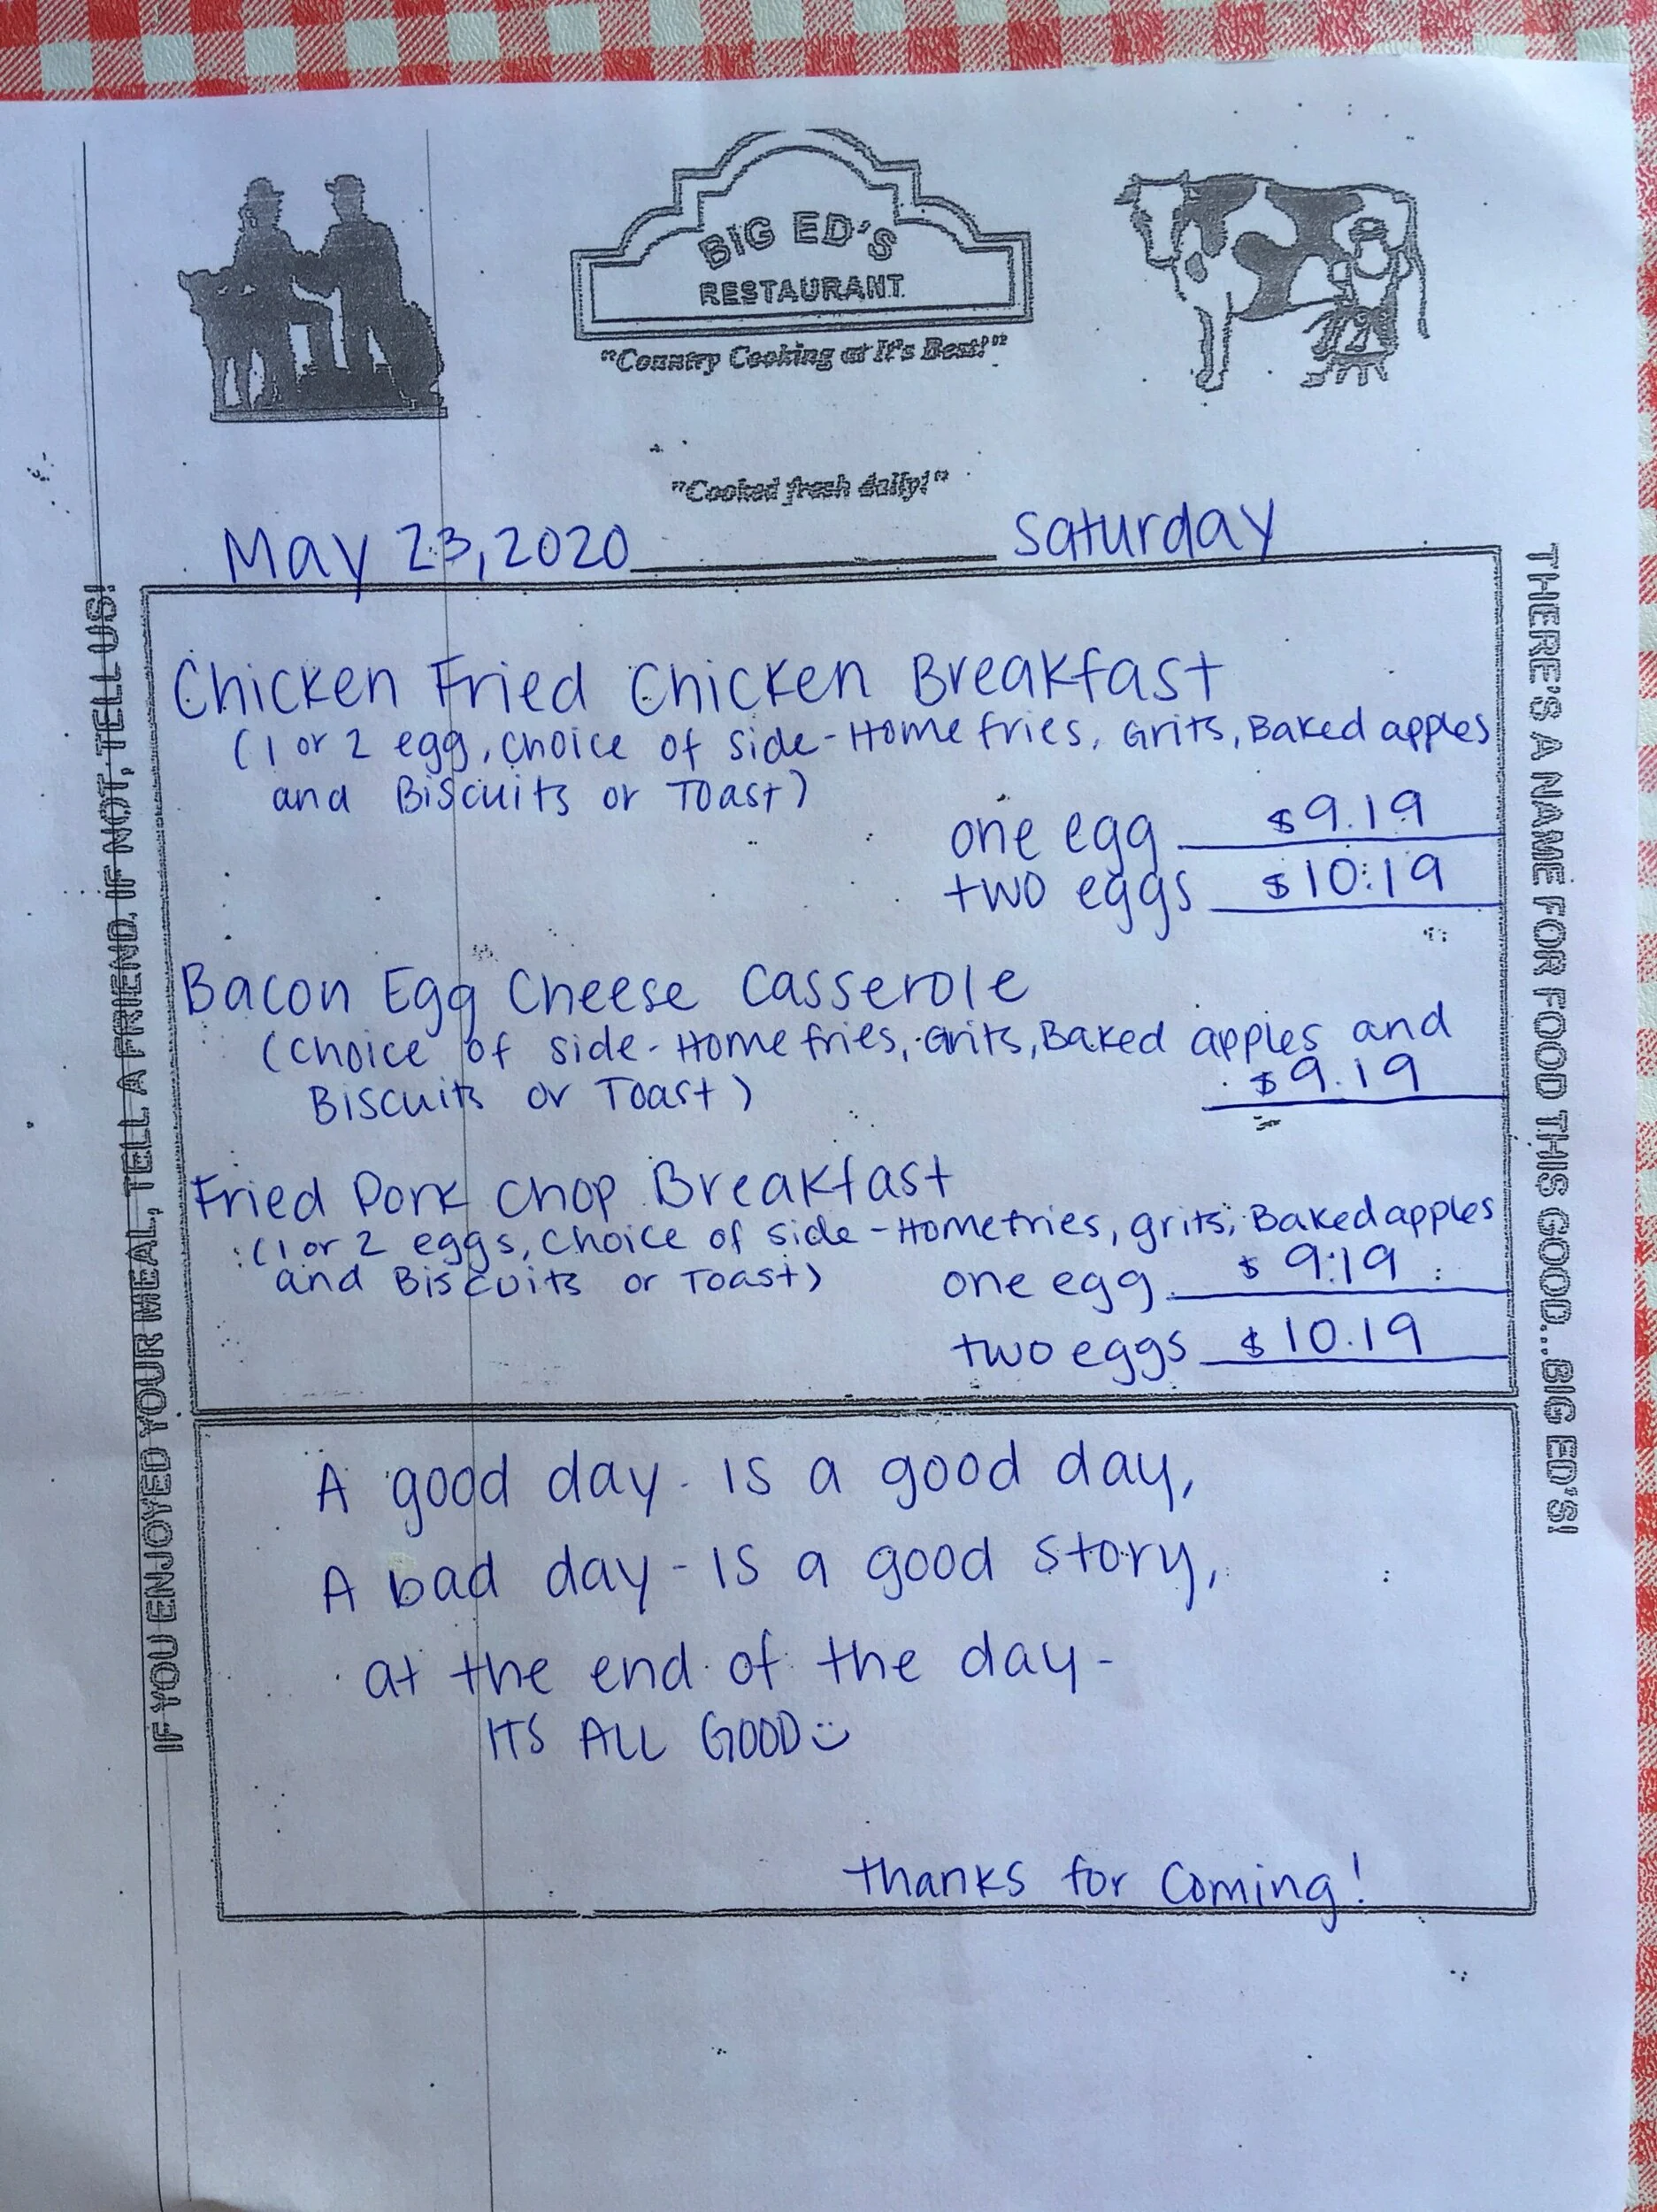 BIG ED'S
RESTAURANT
"Country Cooking at It's Best!"
"Cooked fresh daily!"
May 23, 2020 Saturday
Chicken Fried Chicken Breakfast
(1 or 2 egg, choice of side - Home fries, Grits, Baked apples
and Biscuits or Toast)
one egg $9.19
two eggs $10.19
Bacon Egg Cheese Casserole
(choice of side - Home fries, Grits, Baked apples and
Biscuits or Toast) $9.19
Fried Pork Chop Breakfast
(1 or 2 eggs, choice of side - Home fries, grits, Baked apples
and Biscuits or Toast)
one egg $9.19
two eggs $10.19
A good day - is a good day,
A bad day - is a good story,
at the end of the day -
ITS ALL GOOD :)
thanks for coming!
IF YOU ENJOYED YOUR MEAL, TELL A FRIEND, IF NOT, TELL US!
THERE'S A NAME FOR FOOD THIS GOOD...BIG ED'S!